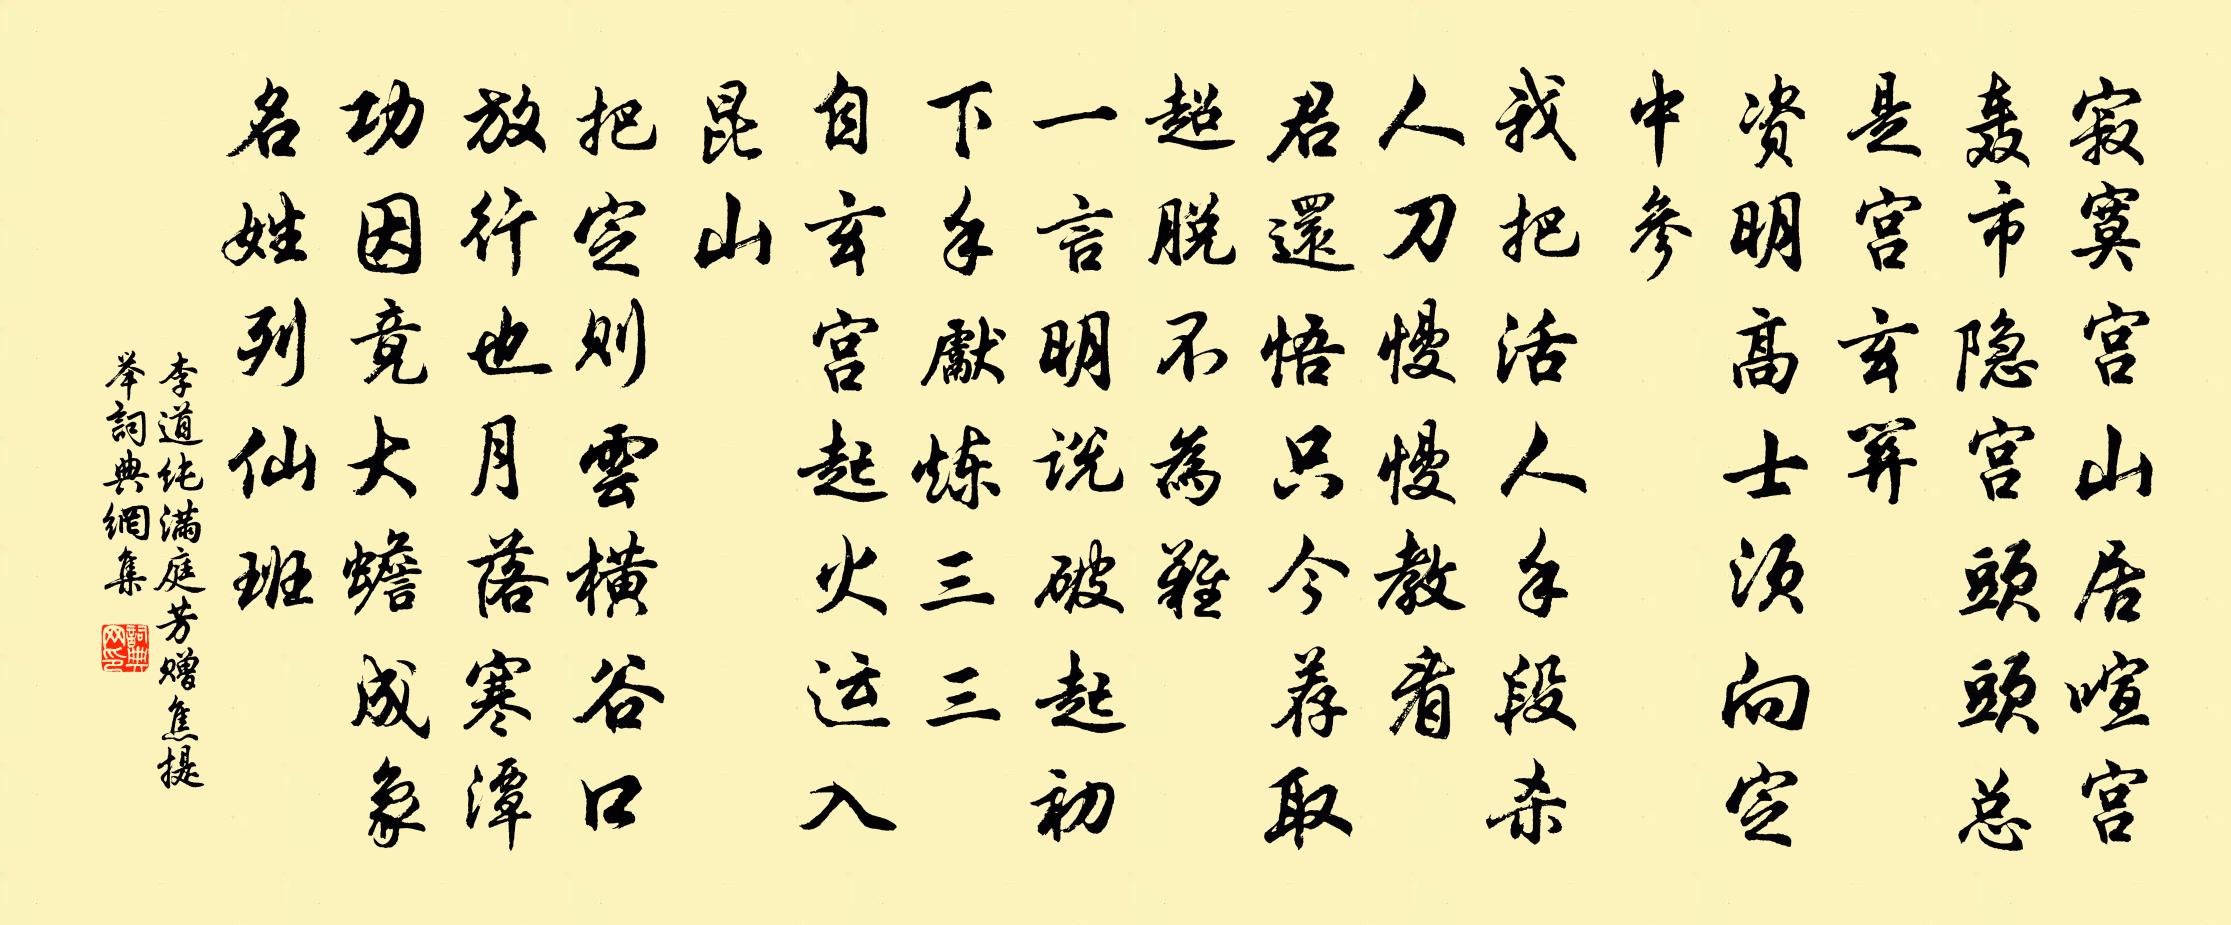 寂寞宫山居喧宫
轰市隐宫頭頭总
是宫玄関
资明高士须向定
中參
我把活人手段杀
人刀慢慢教看
君還悟只今荐取
超脱不為難
一言明说破起初
下手獻炼三三
自玄宫起火运入
昆山
把定则雲横谷口
放行也月落寒潭
功因竟大蟾成象
名姓列仙班
李道纯满庭芳赠焦提
举詞典網集
詞典网印